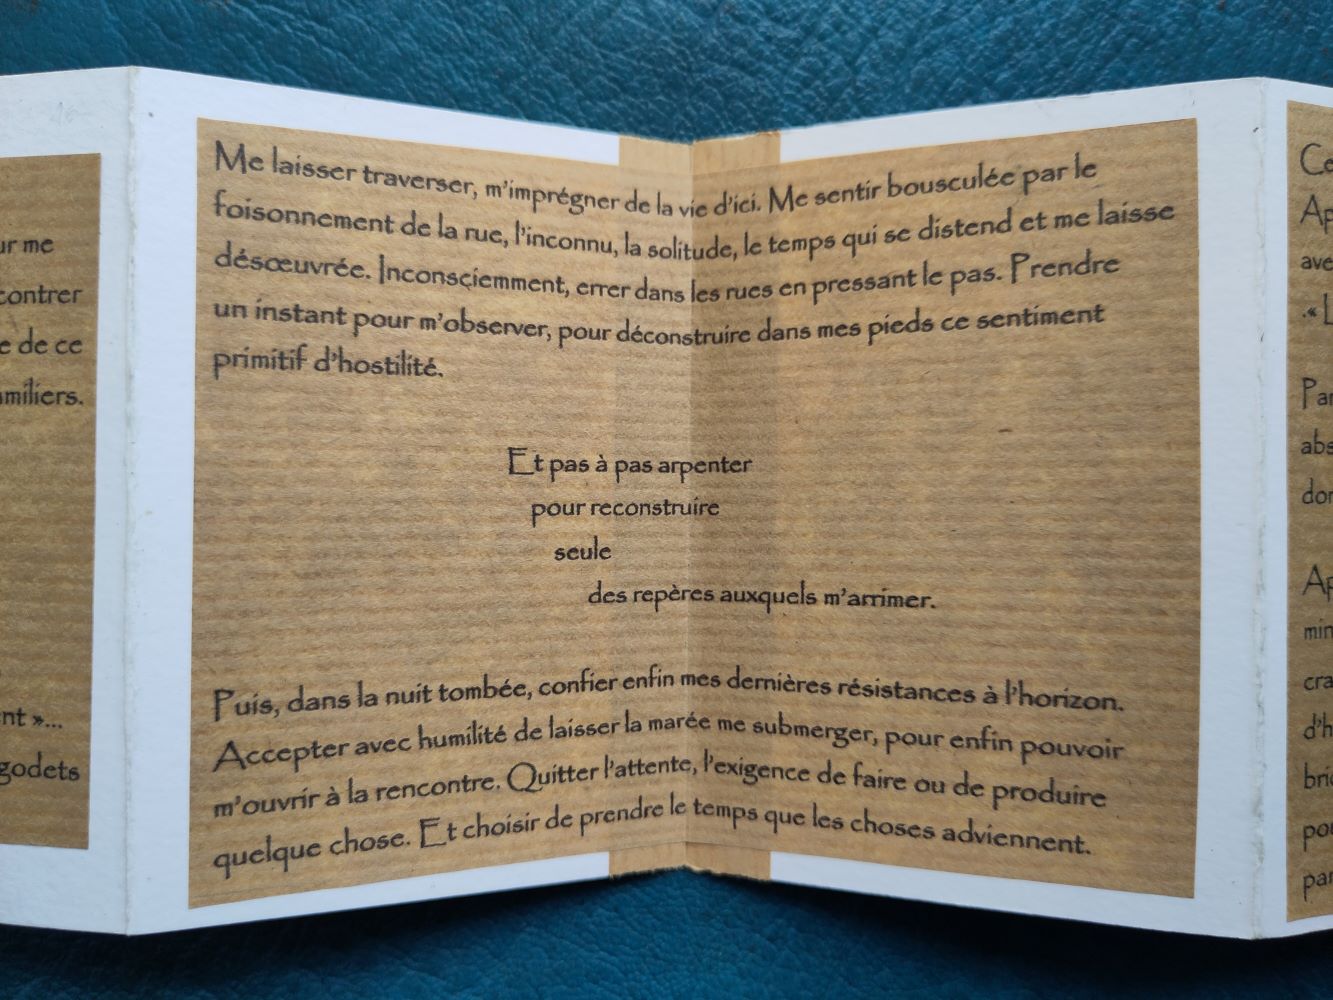 ur me
contrer
e de ce
amiliers.
nt »...
godets
Me laisser traverser, m'imprégner de la vie d'ici. Me sentir bousculée par le
foisonnement de la rue, l'inconnu, la solitude, le temps qui se distend et me laisse
désœuvrée. Inconsciemment, errer dans les rues en pressant le pas. Prendre
un instant pour m'observer, pour déconstruire dans mes pieds ce sentiment
primitif d'hostilité.
Et pas à pas arpenter
pour reconstruire
seule
des repères auxquels m'arrimer.
Puis, dans la nuit tombée, confier enfin mes dernières résistances à l'horizon.
Accepter avec humilité de laisser la marée me submerger, pour enfin pouvoir
m'ouvrir à la rencontre. Quitter l'attente, l'exigence de faire ou de produire
quelque chose. Et choisir de prendre le temps que les choses adviennent.
Ce
Ap
ave
.« L
Par
abs
don
Ap
min
cra
d'h
bri
pou
par